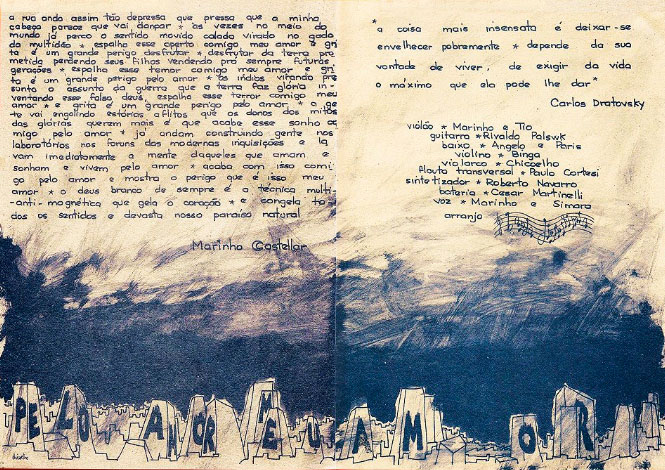 a rua anda assim tão depressa que pressa que a minha
cabeça parece que vai dançar * as vezes no meio do
mundo já perco o sentido movido calado virado no gado
da multidão * espalho esse aperto comigo meu amor e gri
te é um grande perigo desfrutar * desfrutar da terra pro
metida perdendo seus filhos vendendo pro sempre futuras
gerações * espalho esse temor comigo meu amor e gri
te é um grande perigo pelo amor * os índios virando pre
sunto o assunto da guerra que a terra faz glória in-
ventando esse falso deus, espalho esse terror comigo meu
amor * e grita é um grande perigo pelo amor * a ge
te vai engolindo estórias aflitas que os donos dos mitos
das glórias querem mais é que acabe esse sonho co
migo pelo amor * já andam construindo gente nos
laboratórios nos foruns das modernas inquisições e la
vam imediatamente a mente daqueles que amam e
sonham e vivem pelo amor * acaba com isso comi
go pelo amor * mostra o perigo que é isso meu
amor * o deus branco de sempre é a técnica multi-
-anti-magnética que gela o coração * e congela to-
dos os sentidos e devasta nosso paraíso natural
Marinho Castellar
"a coisa mais insensata é deixar-se
envelhecer pobremente * depende da sua
vontade de viver, de exigir da vida
o máximo que ela pode lhe dar"
Carlos Dratovsky
violão * Marinho e Tio
guitarra * Rivaldo Palswk
baixo * Angelo e Paris
violino * Binga
violarco * Chicoelho
flauta transversal * Paulo Cortesi
sintetizador * Roberto Navarro
bateria * Cesar Martinelli
voz * Marinho e Simara
arranjo
PELO AMOR MEU AMOR